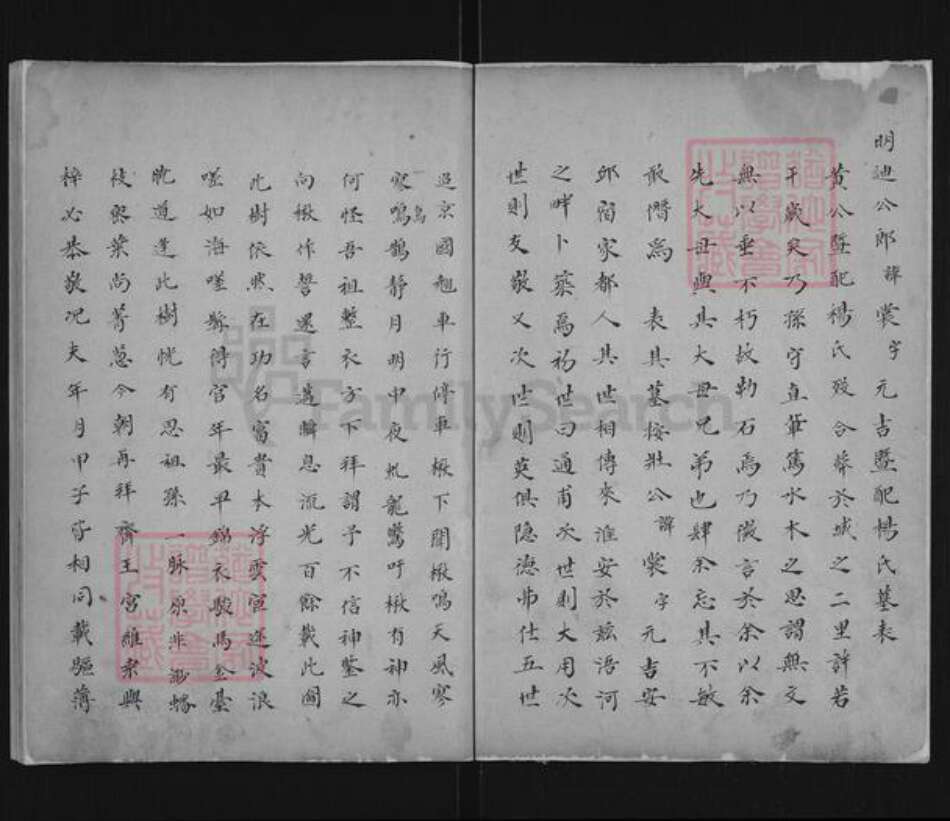 明迪公郎諱裳字元吉暨配楊氏墓表
黄公暨配楊氏歿合葬於城之二里許若
干歲矣乃孫守直輩篤水木之思謂無文
無以垂不朽故勒石焉乃徵言於余以余
先大母與其大母兄弟也肆余忘其不敏
敢僭爲 表其墓按壯公諱裳字元吉安
邱宿家都人其世相傳來淮安於兹浯河
之畔卜築焉初世曰通甫次世則大用次
世則友敬又次世則英俱隐德弗仕五世
返京國勉車行停車楸下聞楸鳴天風寒
寒鳴鶴靜月明中夜虬龍驚吁楸有神亦
何怪吾祖整衣方下拜謂予不信神鑒之
向楸作誓還言邁瞬息流光百餘載此閒
此樹依然在功名富貴本浮雲宦途波浪
嗟如海嗟縣傅官年最早錦衣駿馬金臺
晩道逢此樹恍有思祖孫一脉原非渺
枝柴葉尚菁葱今朝再拜齊王宮維桑與
梓必恭敬况夫年月甲子字相同載驅薄
FamilySearch